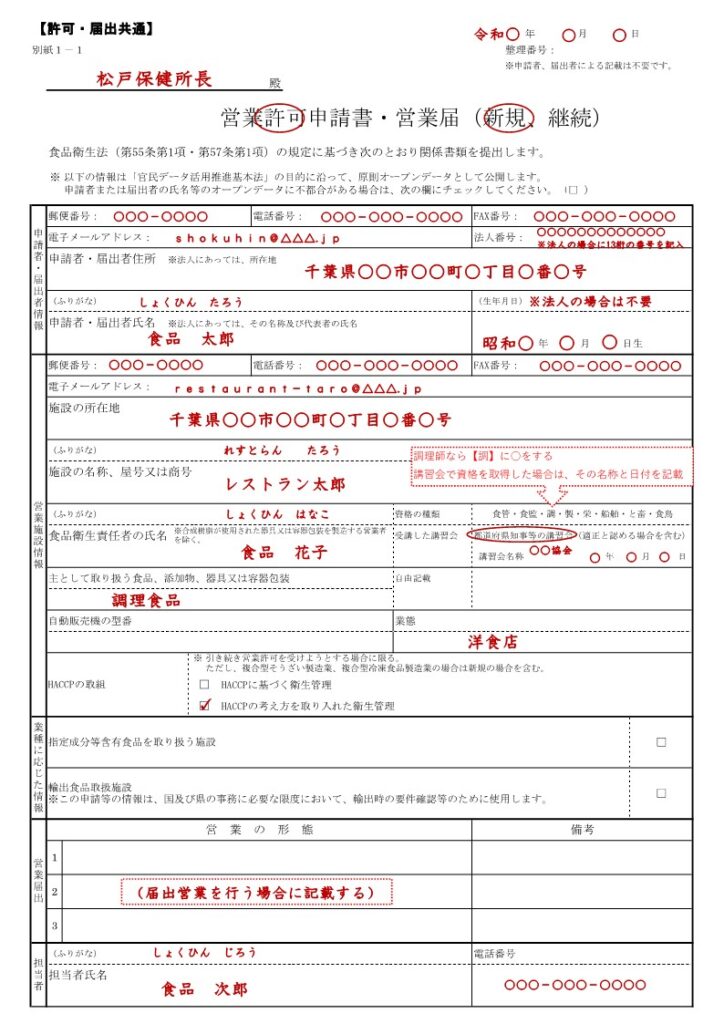 【許可・届出共通】
別紙１－１
令和〇 年 〇月 〇 日
整理番号：
※申請者、届出者による記載は不要です。
松戸保健所長 殿
営業許可申請書・営業届（新規、継続）
食品衛生法（第55条第1項・第57条第1項）の規定に基づき次のとおり関係書類を提出します。
※ 以下の情報は「官民データ活用推進基本法」の目的に沿って、原則オープンデータとして公開します。
申請者または届出者の氏名等のオープンデータに不都合がある場合は、次の欄にチェックしてください。（□ ）
申請者・届出者情報
郵便番号： 〇〇〇－〇〇〇〇 電話番号： 〇〇〇－〇〇〇－〇〇〇〇 FAX番号： 〇〇〇－〇〇〇－〇〇〇〇
電子メールアドレス： ｓｈｏｋｕｈｉｎ＠△△△．ｊｐ 法人番号： 〇〇〇〇〇〇〇〇〇〇〇〇〇
※法人の場合に13桁の番号を記入
申請者・届出者住所 ※法人にあっては、所在地
千葉県〇〇市〇〇町〇丁目〇番〇号
（ふりがな） しょくひん たろう （生年月日） ※法人の場合は不要
申請者・届出者氏名 ※法人にあっては、その名称及び代表者の氏名
食品 太郎 昭和〇 年 〇 月 〇 日生
営業施設情報
郵便番号： 〇〇〇－〇〇〇〇 電話番号： 〇〇〇－〇〇〇－〇〇〇〇 FAX番号： 〇〇〇－〇〇〇－〇〇〇〇
電子メールアドレス： ｒｅｓｔａｕｒａｎｔ－ｔａｒｏ＠△△△．ｊｐ
施設の所在地
千葉県〇〇市〇〇町〇丁目〇番〇号
（ふりがな） れすとらん たろう
施設の名称、屋号又は商号
レストラン太郎
調理師なら【調】に○をする
講習会で資格を取得した場合は、その名称と日付を記載
（ふりがな） しょくひん はなこ 資格の種類 食管・食監・調・製・栄・船舶・と畜・食鳥
食品衛生責任者の氏名 ※合成樹脂が使用された器具又は容器包装を製造する営業者を除く。 受講した講習会 都道府県知事等の講習会（適正と認める場合を含む）
食品 花子 講習会名称 〇〇協会 〇 年 〇 月 〇 日
主として取り扱う食品、添加物、器具又は容器包装 自由記載
調理食品
自動販売機の型番 業態
洋食店
HACCPの取組
※ 引き続き営業許可を受けようとする場合に限る。
ただし、複合型そうざい製造業、複合型冷凍食品製造業の場合は新規の場合を含む。
□ HACCPに基づく衛生管理
☑ HACCPの考え方を取り入れた衛生管理
業種に応じた情報
指定成分等含有食品を取り扱う施設 □
輸出食品取扱施設
※この申請等の情報は、国及び県の事務に必要な限度において、輸出時の要件確認等のために使用します。 □
営業届出
営 業 の 形 態 備考
1
2 （届出営業を行う場合に記載する）
3
担当者
（ふりがな） しょくひん じろう 電話番号
担当者氏名
食品 次郎 〇〇〇－〇〇〇－〇〇〇〇